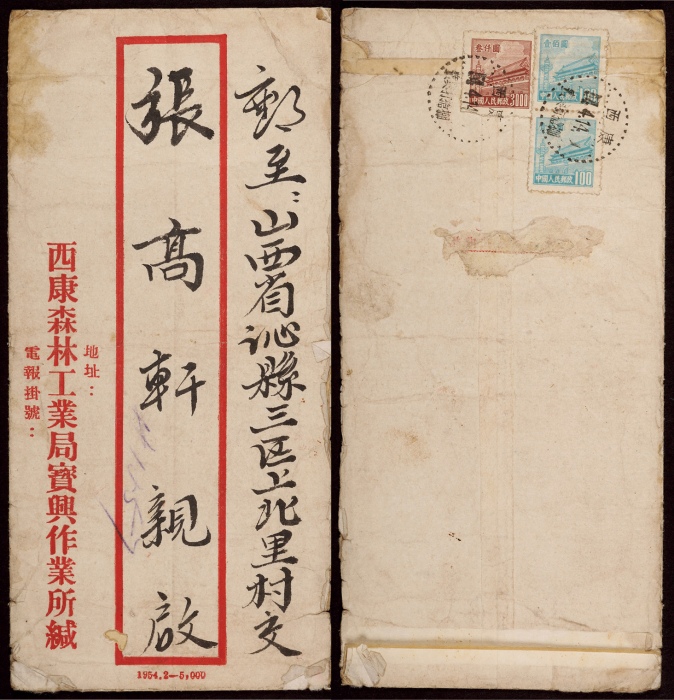 郵至：山西省沁縣三區上北里村交
張高軒親啟
地址：
電報掛號：
西康森林工業局寶興作業所緘
1954.2—5,000
叁仟圓
中國人民郵政 3000
壹佰圓
中國人民郵政 100
西康